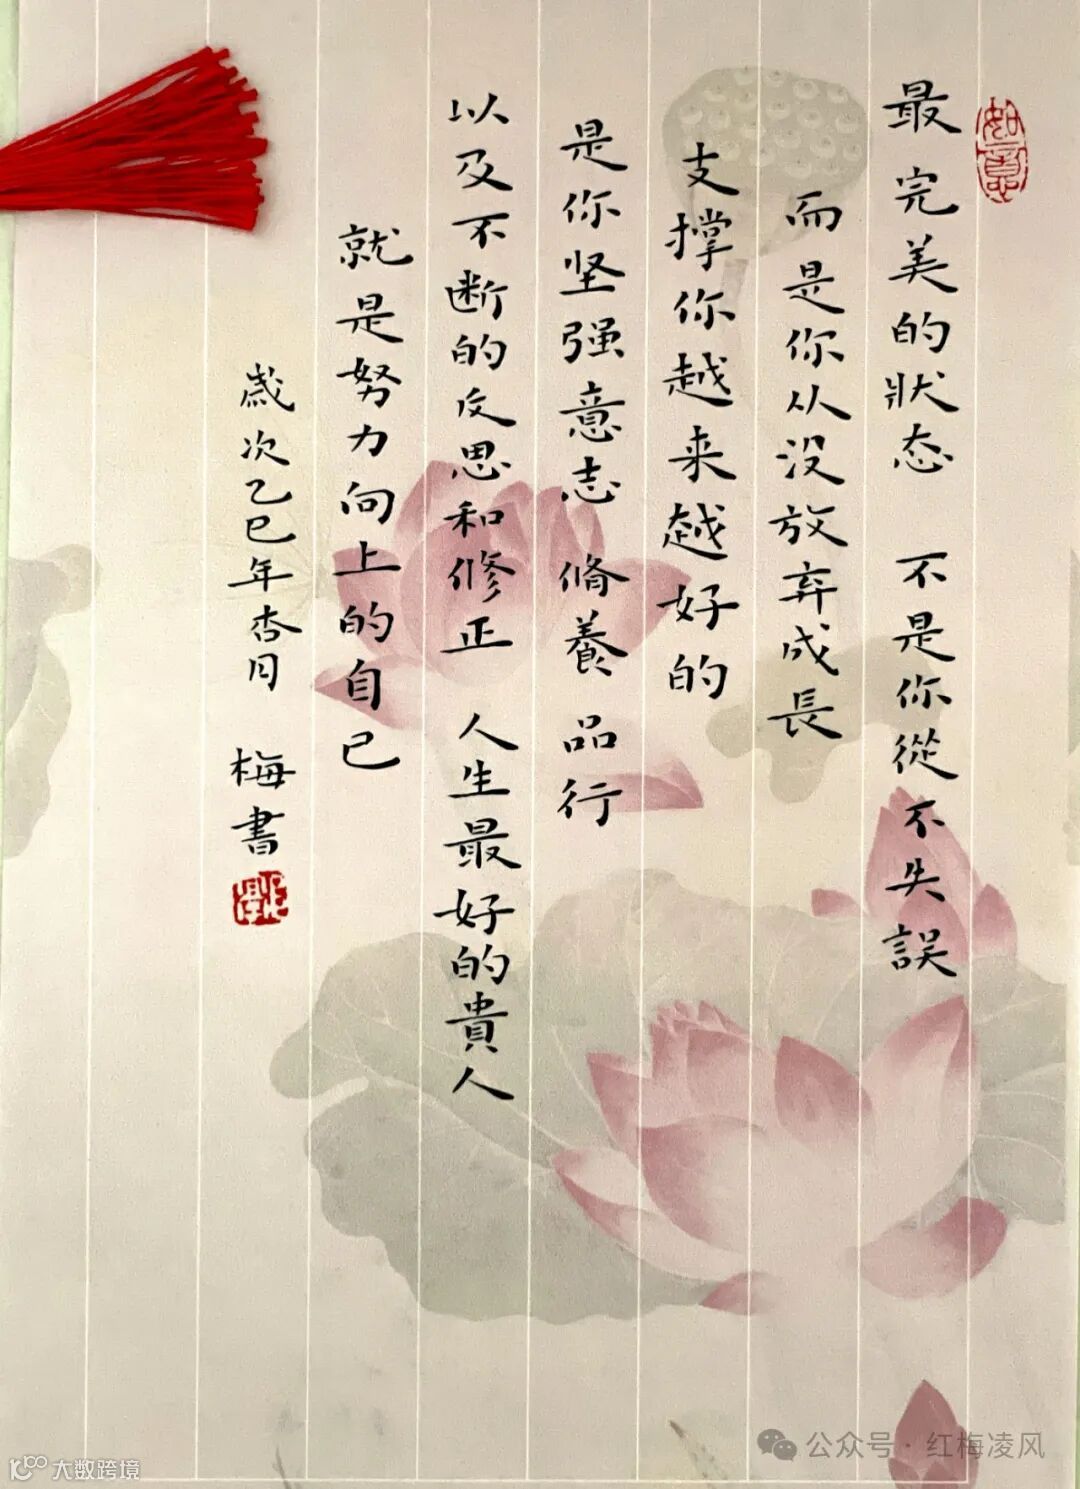 如意
最完美的狀态 不是你從不失誤
而是你从没放弃成長
支撑你越来越好的
是你坚强意志 脩養 品行
以及不断的反思和修正 人生最好的貴人
就是努力向上的自己
歲次乙巳年杏月 梅書
公众号·红梅凌风
大数跨境